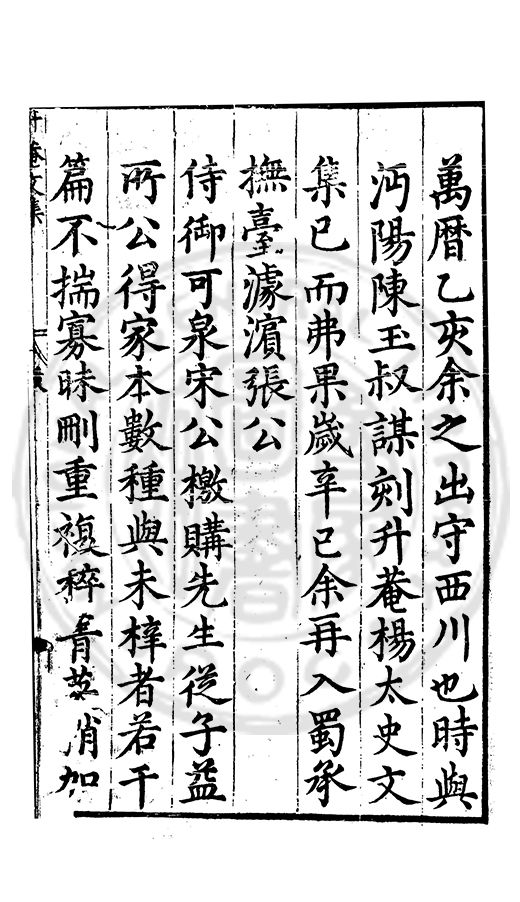 萬暦乙亥余之出守西川也時與
沔陽陳玉叔謀刻升菴楊太史文
集已而弗果歲辛巳余再入蜀承
撫臺澽濱張公
侍御可泉宋公檄購先生從子益
所公得家本數種與未梓者若干
篇不揣寡昧刪重複稡菁英稍加
升菴文集